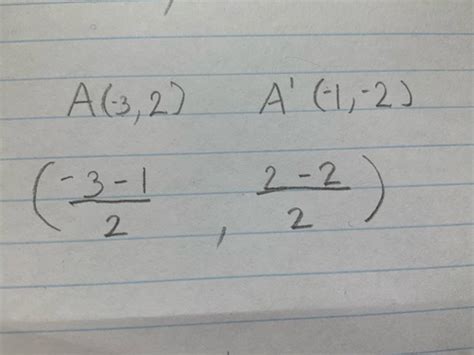 A(-3, 2) A'(-1, -2)
(-3-1/2, 2-2/2)